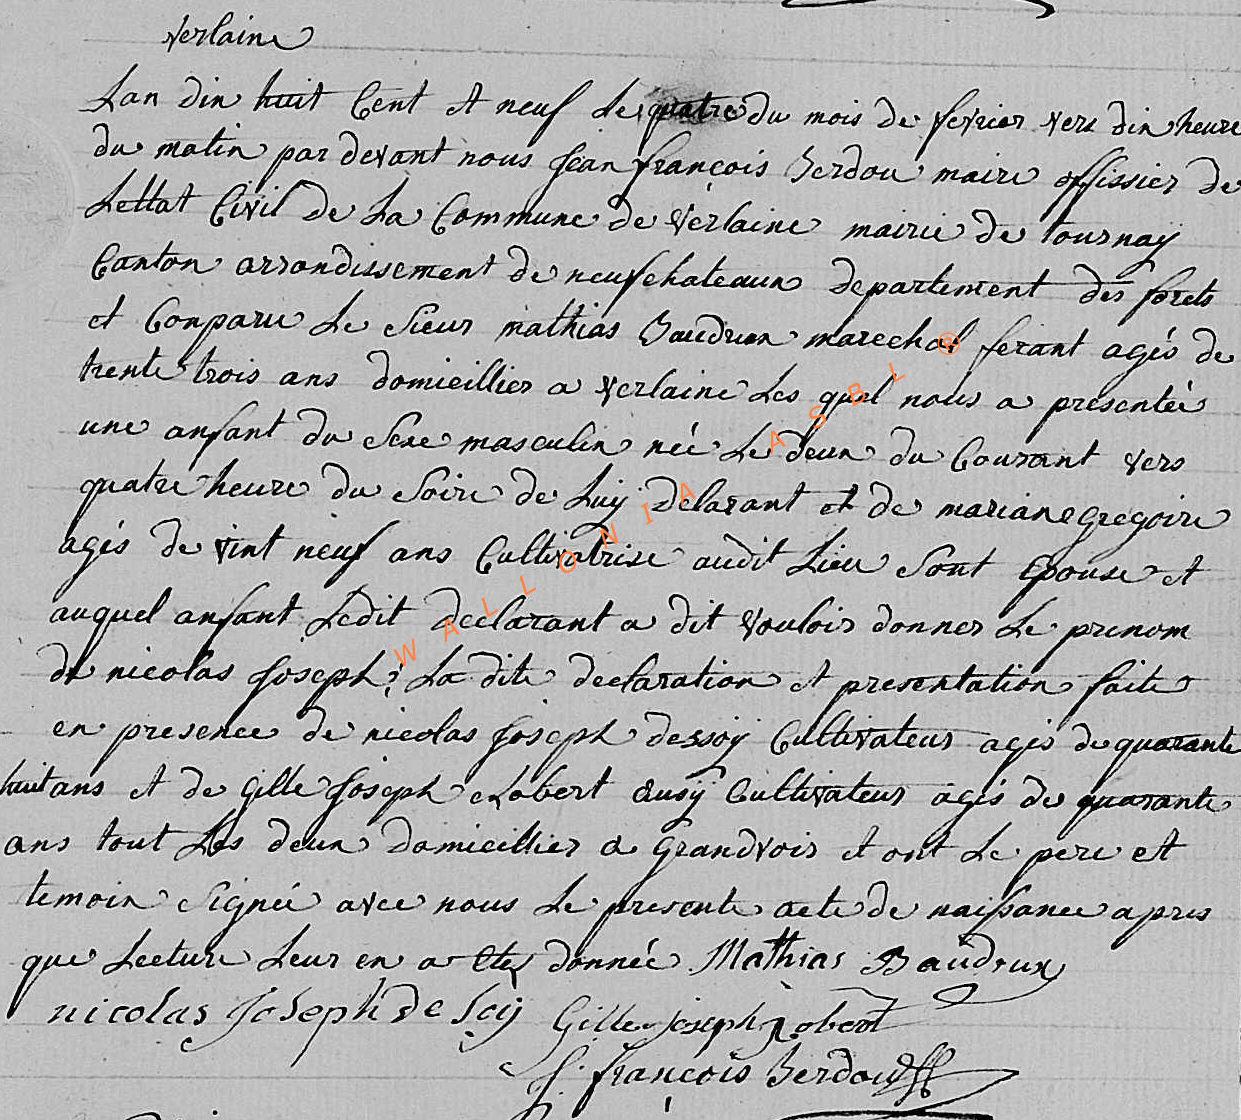 verlaine
Lan dix huit Cent et neuf Le quatre du mois de fevrier vers dix heure
du matin par devant nous Jean françois Berdou maire offissier de
Lettat Civil de La Commune de verlaine mairie de tournay
Canton arrondissement de neufchateaux departement des forets
et Conparu Le Sieur mathias Baudrux marechal ferant agés de
trente trois ans domicillier a verlaine Les quel nous a presentée
une anfant du Sexe masculin née Le deux du Courant vers
quatre heure du Soire de Luy declarant et de mariane gregoire
agés de vint neuf ans Cultivatrise audit Lieu Sont Epouse et
auquel anfant Ledit declarant a dit vouloir donner Le prenom
de nicolas Joseph; La dite declaration et presentation faite
en presence de nicolas Joseph dessoy Cultivateur agés de quarante
huit ans et de gille Joseph Robert ausÿ Cultivateur agés de quarante
ans tout Les deux domicillier a grandvoir et ont Le pere et
temoin Signée avec nous Le presente acte de naissance apres
que Lecture Leur en a ete donnée Mathias Baudrux
nicolas Joseph de Soy Gille joseph Robert
J. françois Berdou
WALLONIA ASBL ®